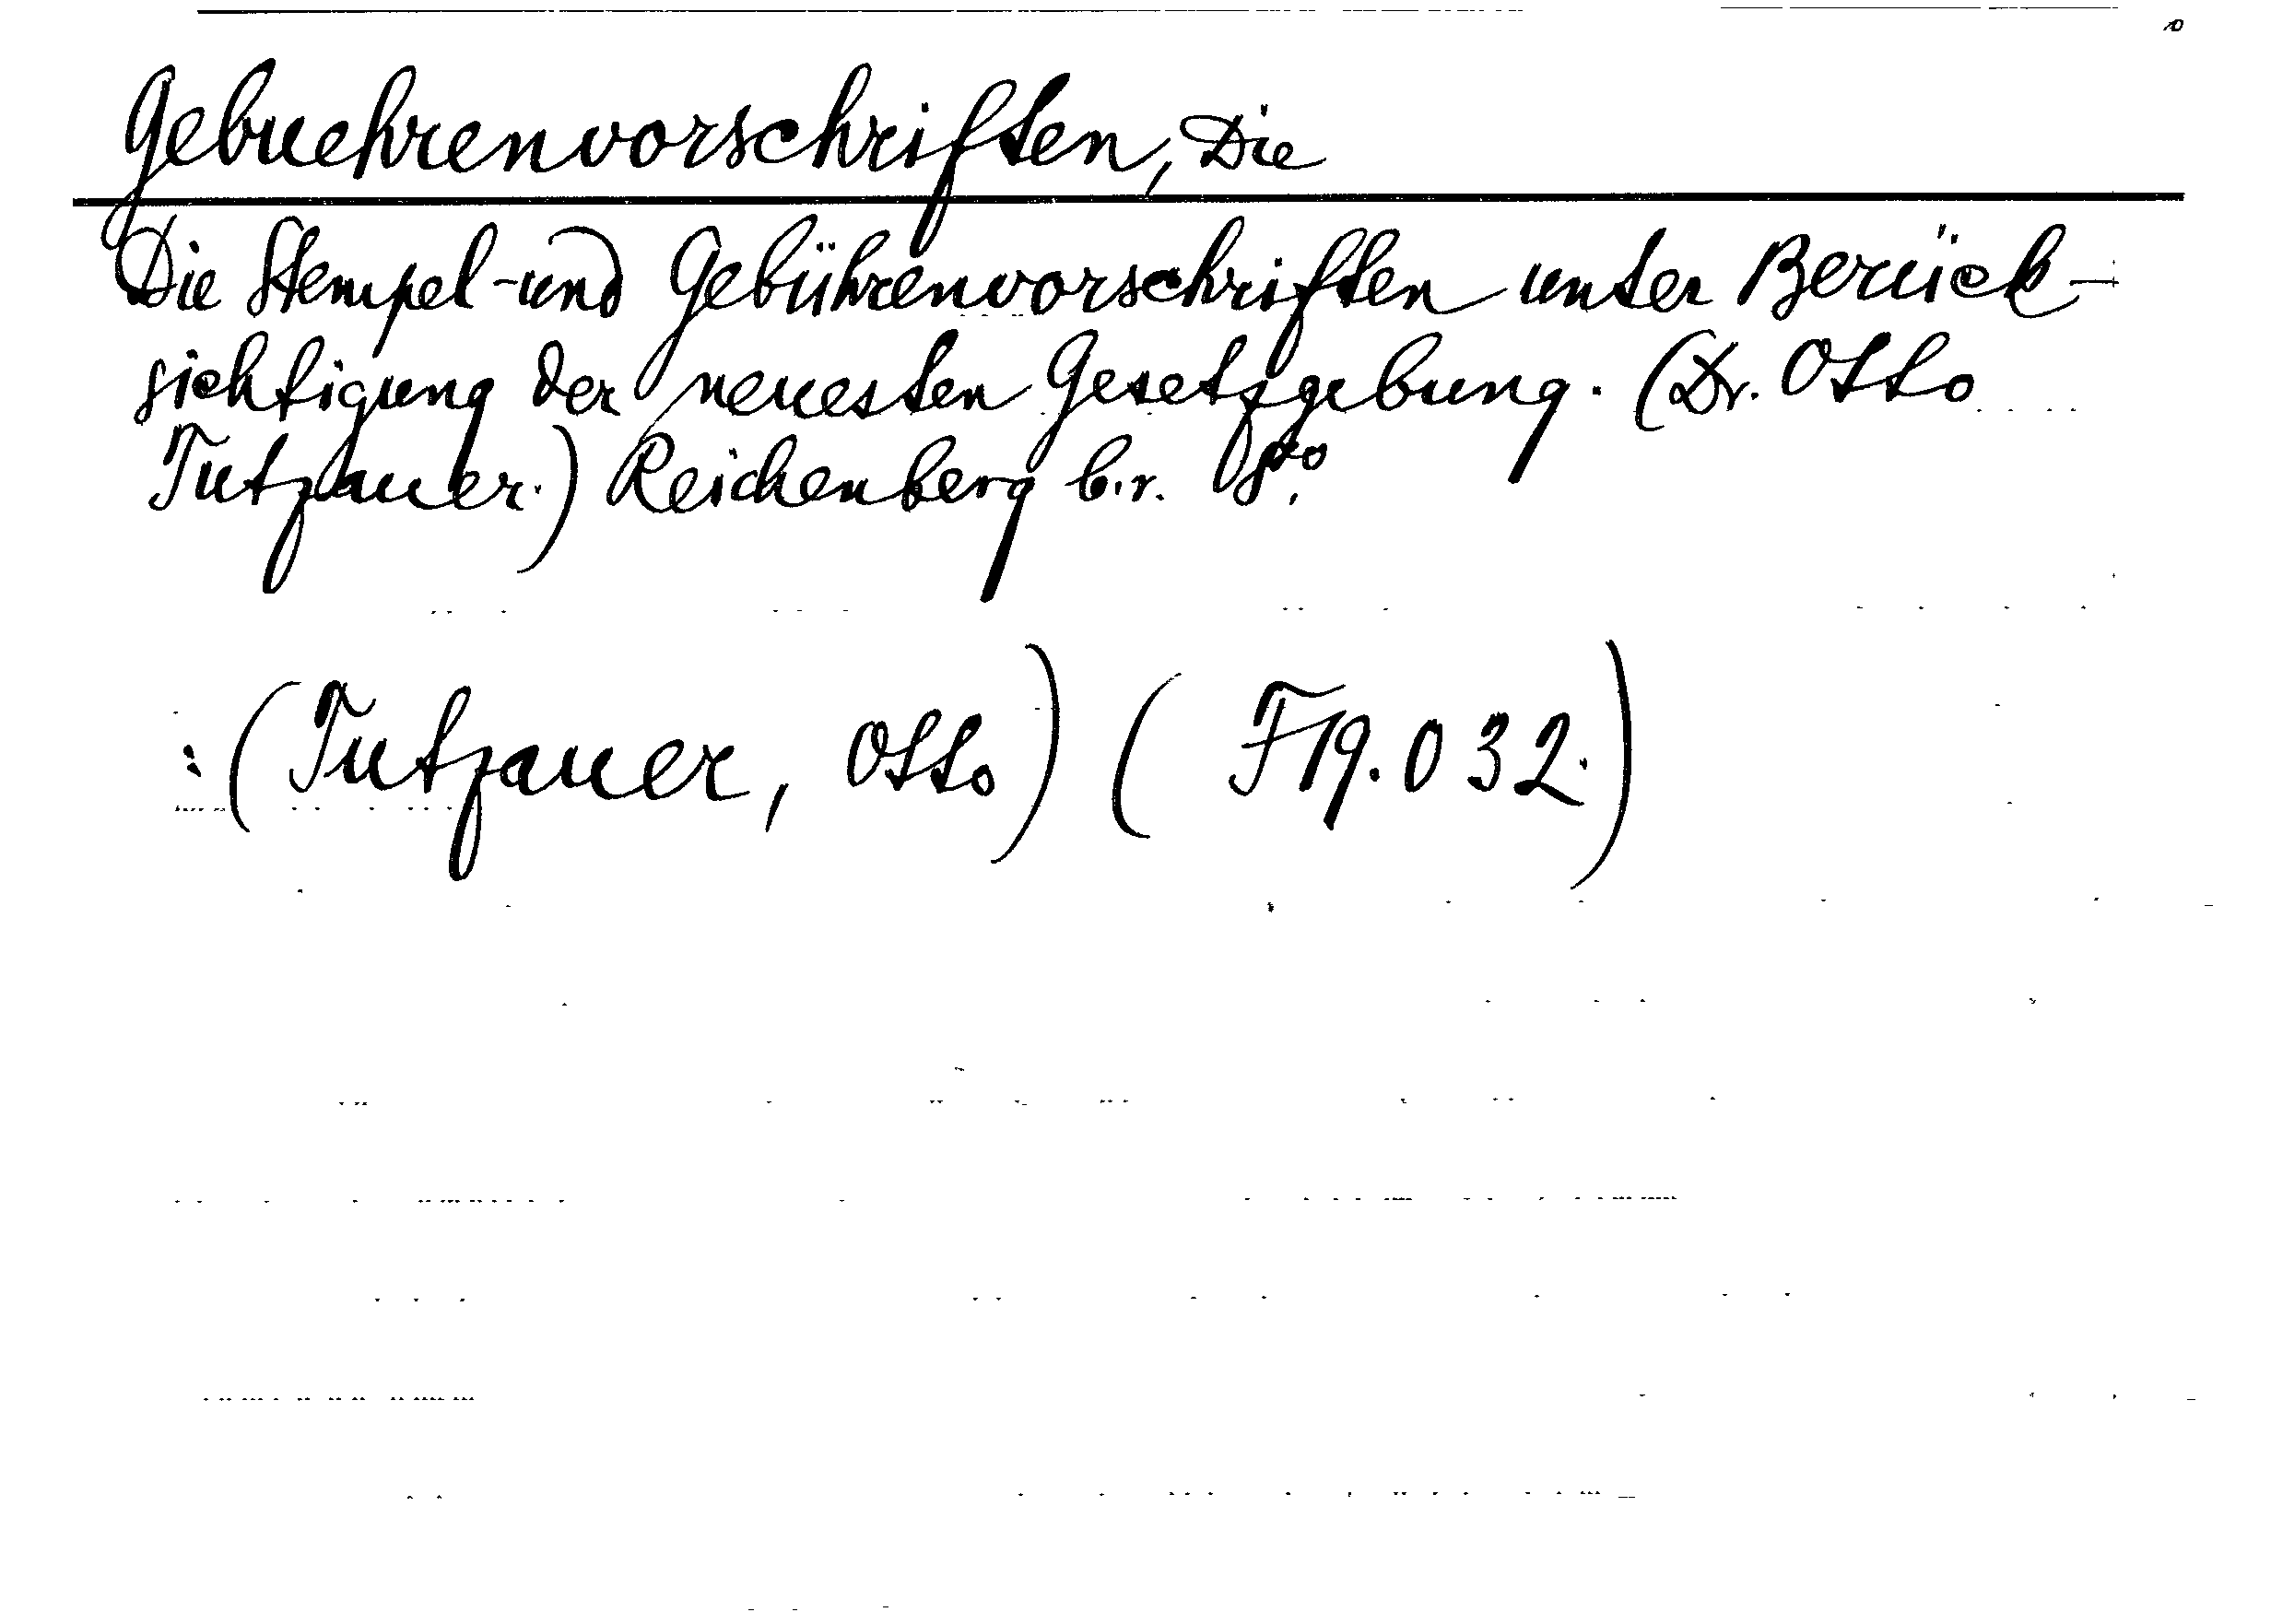 Gebuehrenvorschriften, Die
Die Stempel-und Gebührenvorschriften unter Berück-
sichtigung der neuesten Gesetzgebung. (Dr. Otto
Tutzauer.) Reichenberg b.r. 8to.
: (Tutzauer, Otto) (F19.032.)